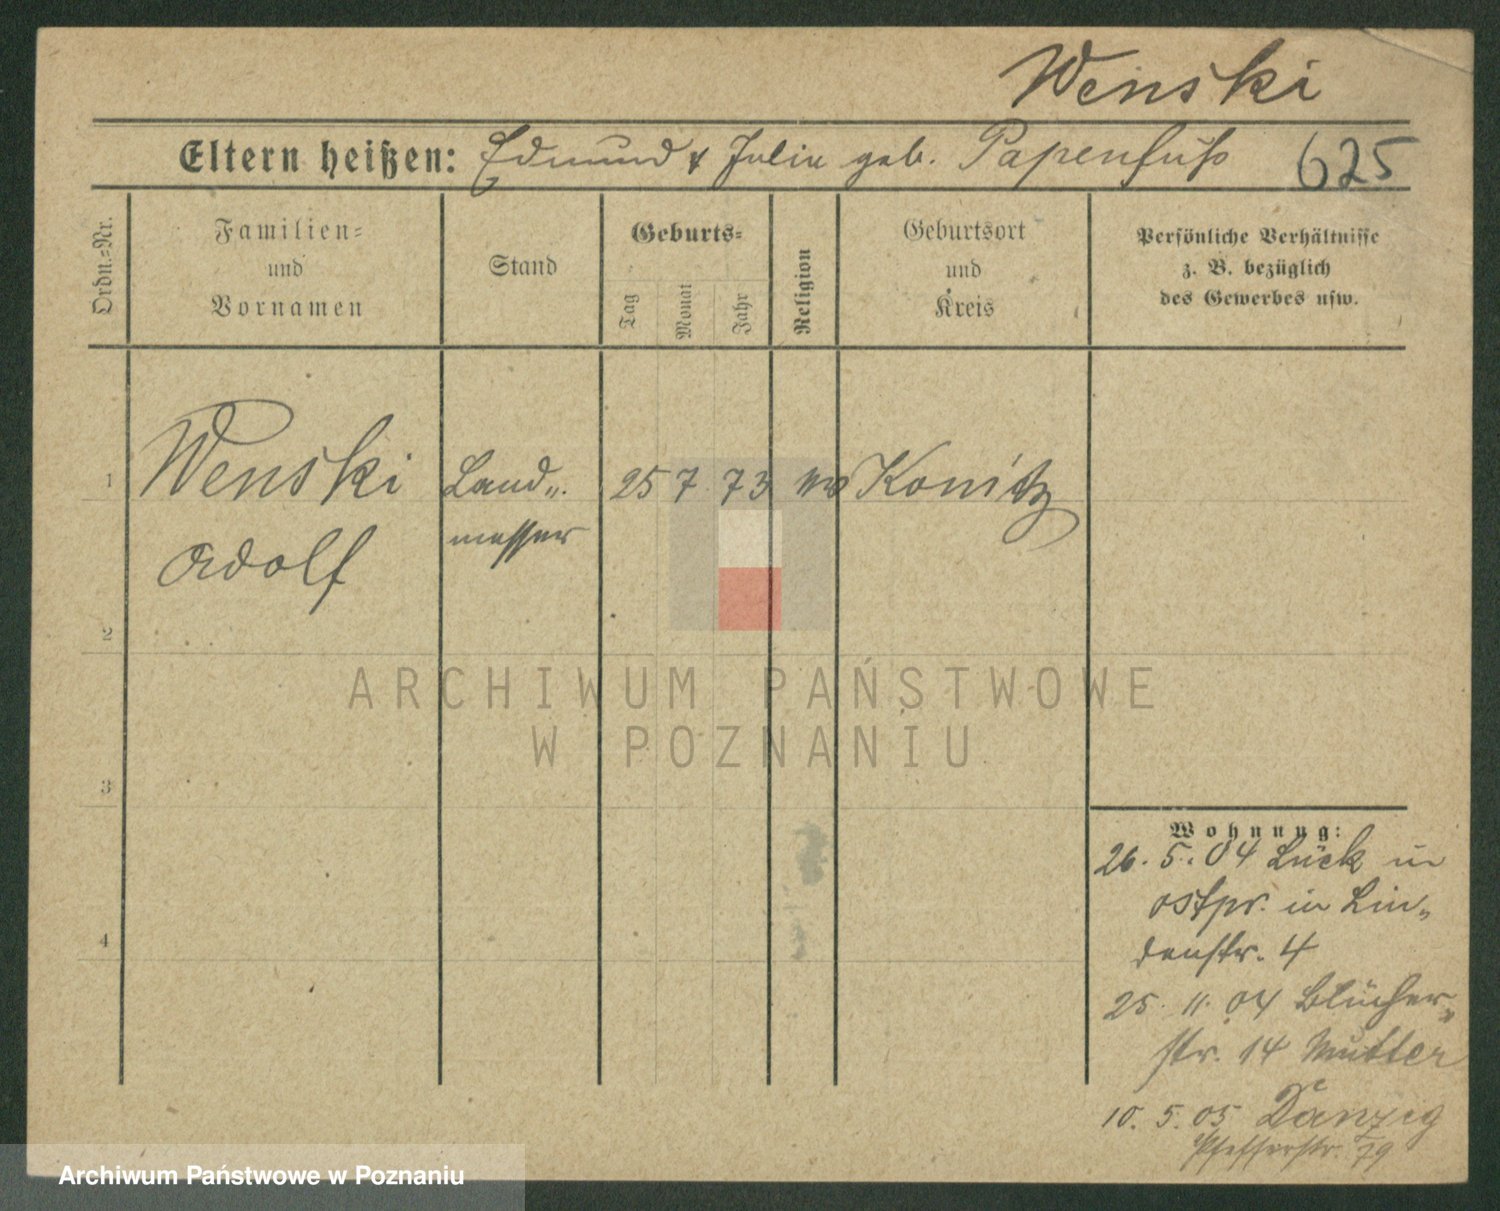 Wenski
Eltern heißen: Edmund & Julia geb. Papenfuß 625
Ordn.-Nr.
Familien-
und
Vornamen
Stand
Geburts-
Tag
Monat
Jahr
Religion
Geburtsort
und
Kreis
Persönliche Verhältnisse
z. B. bezüglich
des Gewerbes usw.
1 Wenski Land- 25 7 73 ev Konitz
messer
Adolf
2
3
4
Wohnung:
26. 5. 04 Lück in
Ostpr. in Lin-
denstr. 4
25. 11. 04 Blücher-
str. 14 Mutter
10. 5. 05 Danzig
Pfefferstr. 79
ARCHIWUM PAŃSTWOWE
W POZNANIU
Archiwum Państwowe w Poznaniu